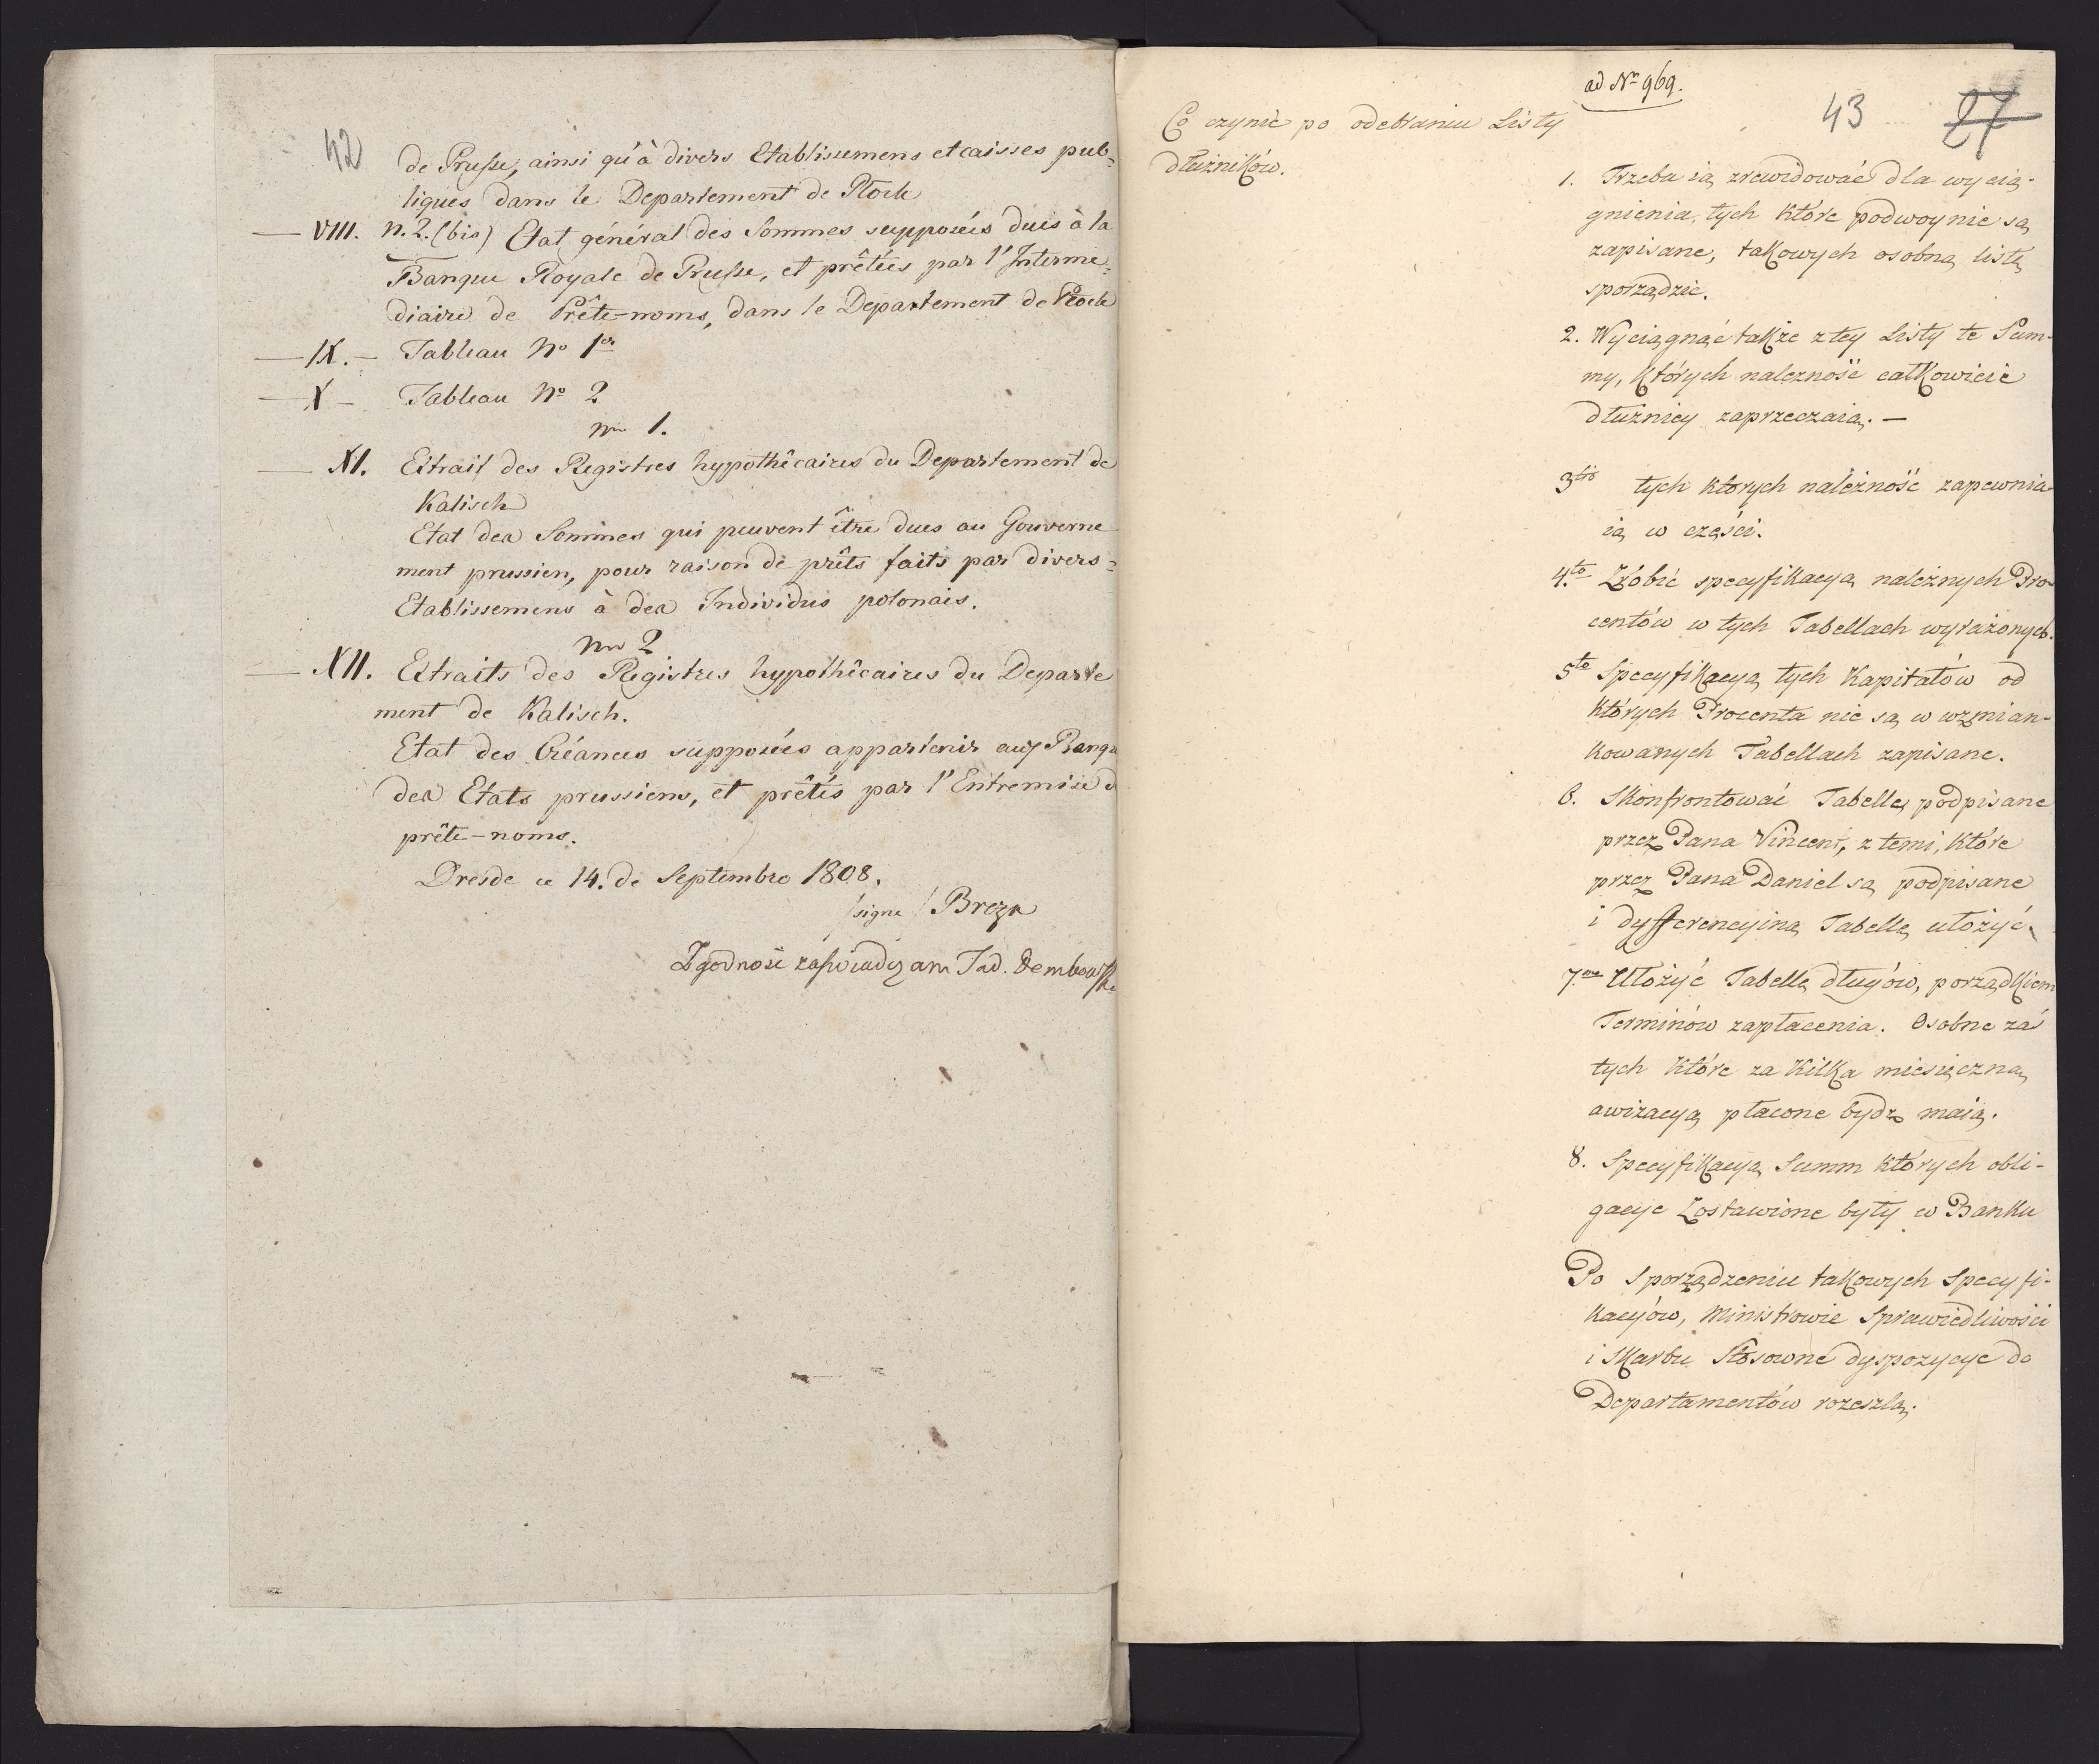 42
de Prusse, ainsi qu'à divers Etablissemens et caisses pub=
liques dans le Departement de Plock
— VIII. n. 2. (bis) Etat général des Sommes supposées dues à la
Banque Royale de Prusse, et prêtées par l'Interme=
diaire de Prête-noms, dans le Departement de Plock
— IX. — Tableau No 1er
— X — Tableau No 2
Nro 1.
— XI. Extrait des Registres hypothêcaires du Departement de
Kalisch
Etat des Sommes qui peuvent être dues au Gouverne
ment prussien, pour raison de prêts faits par divers=
Etablissemens à des Individus polonais.
Nro 2
— XII. Extraits des Registres hypothêcaires du Departe
ment de Kalisch.
Etat des Créances supposées appartenir aux Banqu
des Etats prussiens, et prêtés par l'Entremise d
prête-noms.
Dresde ce 14. de Septembre 1808.
/signe/ Breza
Zgodność zaświadczam Tad. Dembowski
ad Nr 969.
43 27
Co czynić po odebraniu Listy
dłużników.
1. Trzeba ią zrewidować dla wycią-
gnienia, tych które podwoynie są
zapisane, takowych osobną listę
sporządzić.
2. Wyciągnąć także z tey Listy te Sum-
my, których należność całkowicie
dłużnicy zaprzeczaią. —
3tio tych których należność zapewnia-
ią w części.
4.to Zrobić specyfikacyą należnych Pro-
centów w tych Tabellach wyrażonych.
5to Specyfikacyą tych Kapitałów od
których Procenta nie są w wzmian-
kowanych Tabellach zapisane.
6. Skonfrontować Tabelle, podpisane
przez Pana Vincent, z temi, które
przez Pana Daniel są podpisane
i dyfferencyiną Tabellę ułożyć.
7.me Ułożyć Tabellę długów, porządkiem
Terminów zapłacenia. Osobne zaś
tych które za kilka miesięczną
awizacyą płacone bydz maią.
8. Specyfikacyą Summ których obli-
gacye Zostawione były w Banku
Po sporządzeniu takowych specyfi-
kacyów, Ministrowie Sprawiedliwości
i Skarbu stosowne dyspozycye do
Departamentów rozeszlą.